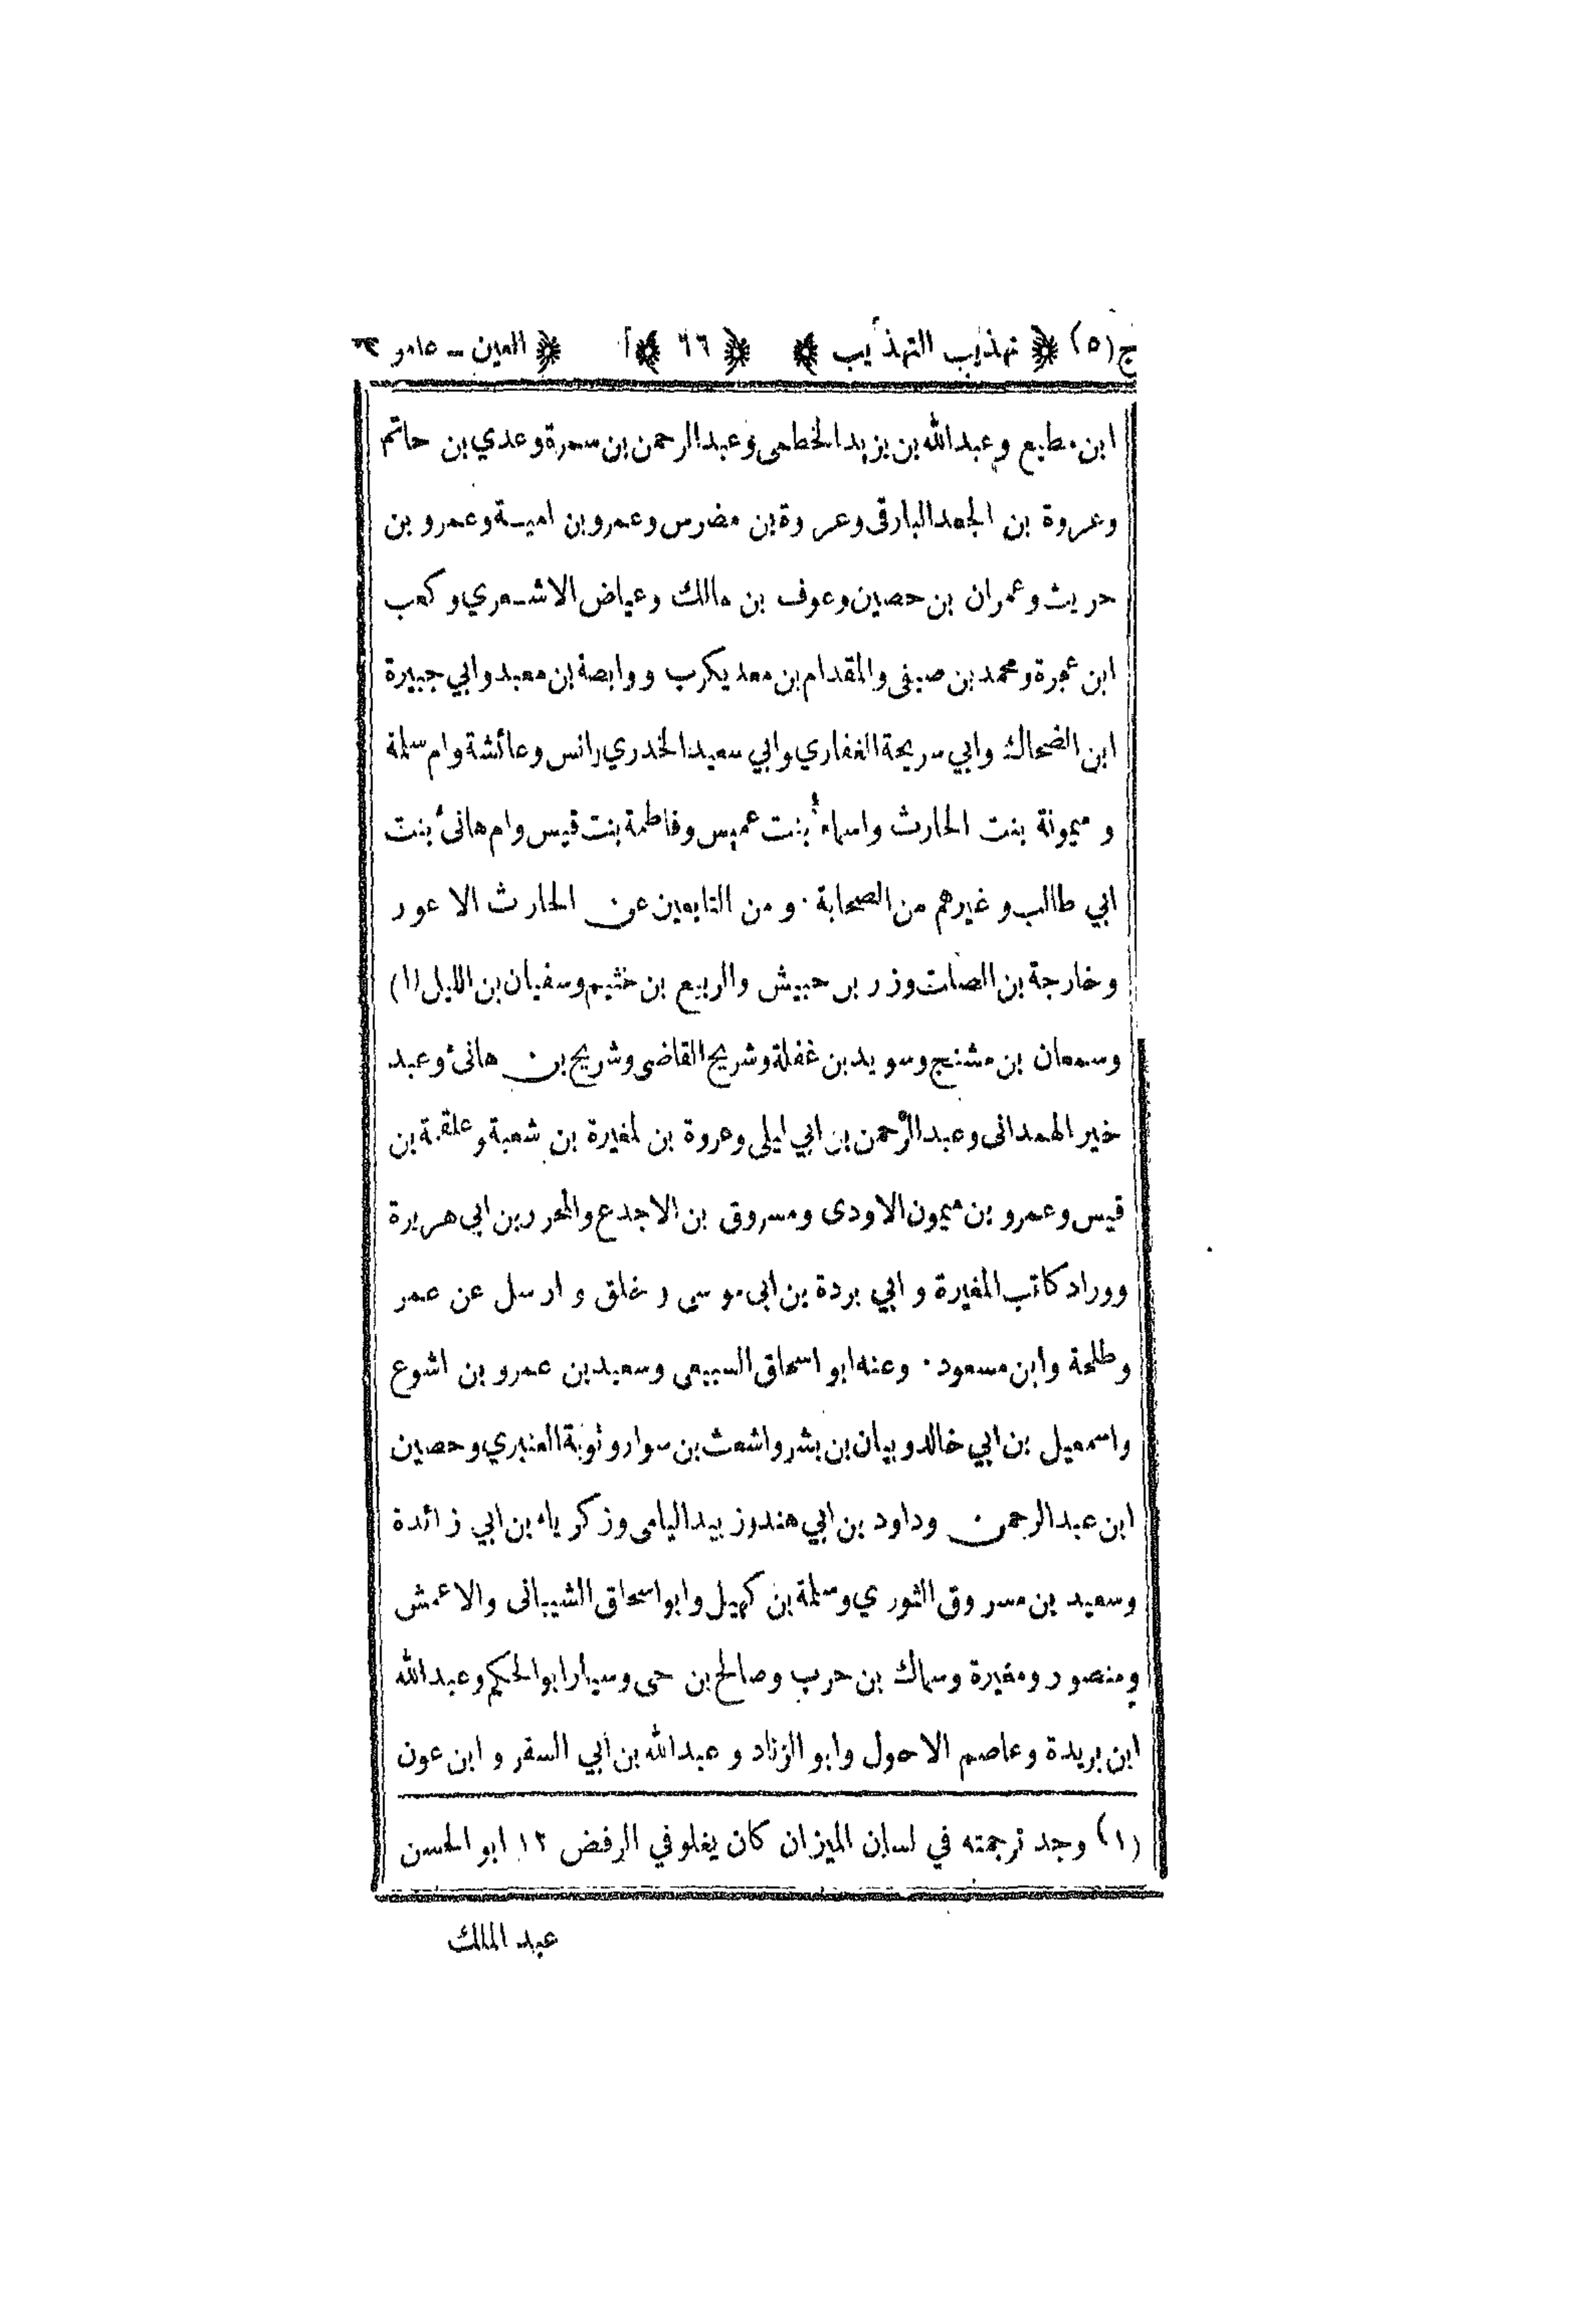 ج(٥) تهذيب التهذيب ٦٦ العين - عامر
ابن مطيع وعبدالله بن يزيد الخطمى وعبدالرحمن بن سمرة وعدي بن حاتم
وعروة بن الجعد البارقى وعروة بن مضرس وعمرو بن امية وعمرو بن
حريث وعمران بن حصين وعوف بن مالك وعياض الاشعري وكعب
ابن عجرة ومحمد بن صيفى والمقدام بن معديكرب ووابصة بن معبد وابي جبيرة
ابن الضحاك وابي سريحة الغفاري وابي سعيد الخدري وانس وعائشة وام سلمة
و ميمونة بنت الحارث واسماء بنت عميس وفاطمة بنت قيس وام هانئ بنت
ابي طالب وغيرهم من الصحابة· و من التابعين عن الحارث الاعور
وخارجة بن الصلت وزر بن حبيش والربيع بن خثيم وسفيان بن الليل (١)
وسمعان بن مشنج وسويد بن غفلة وشريح القاضى وشريح بن هانئ وعبد
خير الهمدانى وعبدالرحمن بن ابي ليلى وعروة بن المغيرة بن شعبة وعلقمة بن
قيس وعمرو بن ميمون الاودى ومسروق بن الاجدع والمحرر بن ابي هريرة
ووراد كاتب المغيرة و ابي بردة بن ابى موسى و خلق و ارسل عن عمر
وطلحة وابن مسعود· وعنه ابو اسحاق السبيعى وسعيد بن عمرو بن اشوع
واسمعيل بن ابي خالد وبيان بن بشر واشعث بن سوار وتوبة العنبري وحصين
ابن عبدالرحمن وداود بن ابي هند وزبيد اليامى وزكرياء بن ابي زائدة
وسعيد بن مسروق الثوري وسلمة بن كهيل وابو اسحاق الشيبانى والاعمش
ومنصور ومغيرة وسماك بن حرب وصالح بن حى وسيار ابو الحكم وعبدالله
ابن بريدة وعاصم الاحول وابو الزناد و عبدالله بن ابي السفر و ابن عون
(١) وجد ترجمته في لسان الميزان كان يغلو في الرفض ١٢ ابو الحسن
عبد الملك